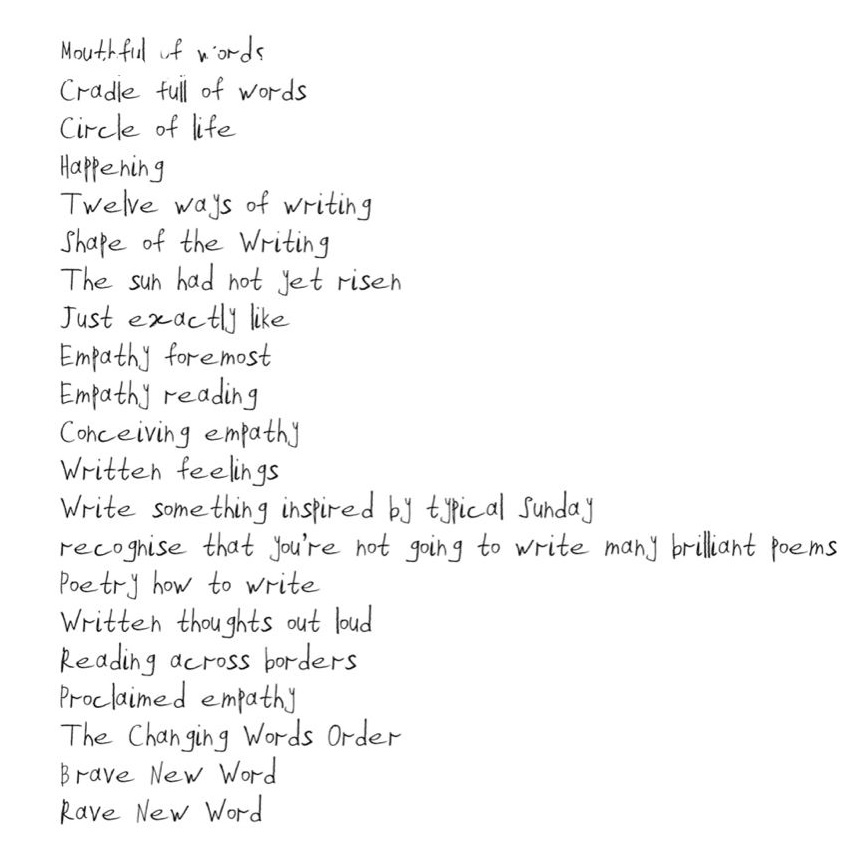 Mouthful of words
Cradle full of words
Circle of life
Happening
Twelve ways of writing
Shape of the Writing
The sun had not yet risen
Just exactly like
Empathy foremost
Empathy reading
Conceiving empathy
Written feelings
Write something inspired by typical Sunday
recognise that you're not going to write many brilliant poems
Poetry how to write
Written thoughts out loud
Reading across borders
Proclaimed empathy
The Changing Words Order
Brave New Word
Rave New Word